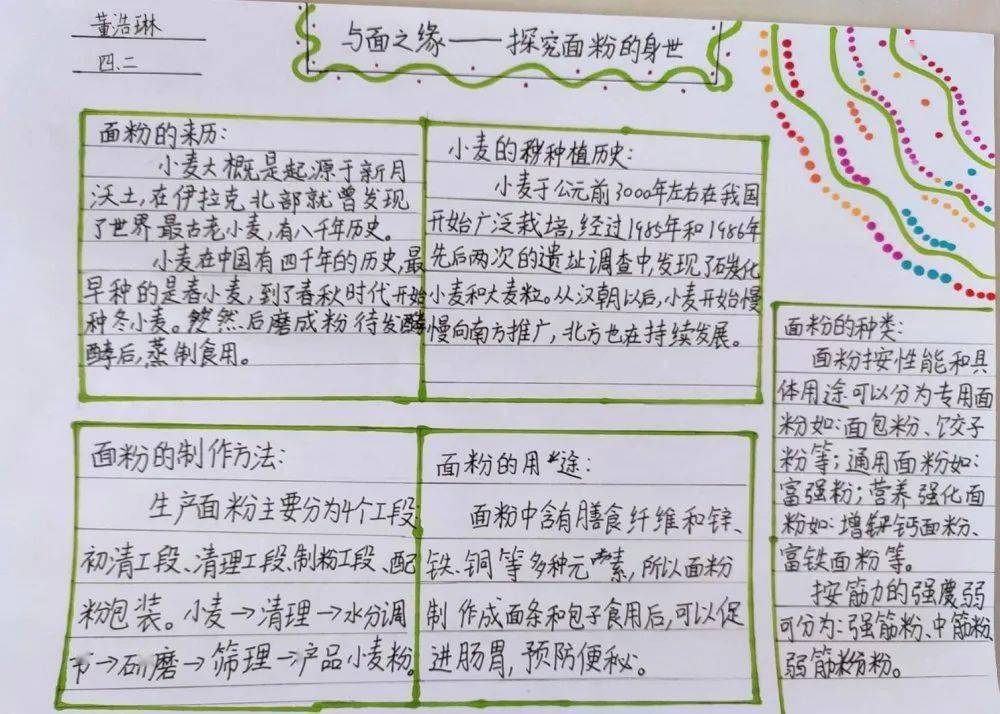 董浩琳
四、二
与面之缘——探究面粉的身世
面粉的来历:
小麦大概是起源于新月
沃土,在伊拉克北部就曾发现
了世界最古老小麦,有八千年历史。
小麦在中国有四千年的历史,最
早种的是春小麦,到了春秋时代开始
种冬小麦。然后磨成粉待发酵
酵后,蒸制食用。
小麦的种植历史:
小麦于公元前3000年左右在我国
开始广泛栽培,经过1985年和1986年
先后两次的遗址调查中,发现了碳化
小麦和大麦粒。从汉朝以后,小麦开始慢
慢向南方推广,北方也在持续发展。
面粉的种类:
面粉按性能和具
体用途可以分为专用面
粉如:面包粉、饺子
粉等;通用面粉如:
富强粉;营养强化面
粉如:增钙面粉、
富铁面粉等。
按筋力的强弱
可分为:强筋粉、中筋粉、
弱筋粉。
面粉的制作方法:
生产面粉主要分为4个工段:
初清工段、清理工段、制粉工段、配
粉包装。小麦→清理→水分调
节→研磨→筛理→产品小麦粉。
面粉的用途:
面粉中含有膳食纤维和锌、
铁、铜等多种元素,所以面粉
制作成面条和包子食用后,可以促
进肠胃,预防便秘。